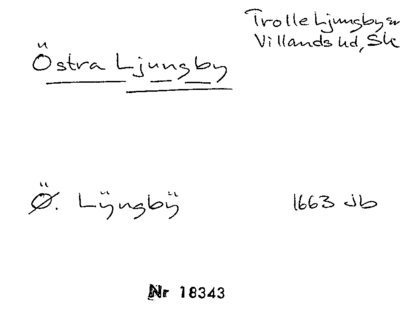 Trolle Ljungby sn
Villands hd, Sk
Östra Ljungby
Ø̈. Lÿngbÿ 1663 Jb
Nr 18343